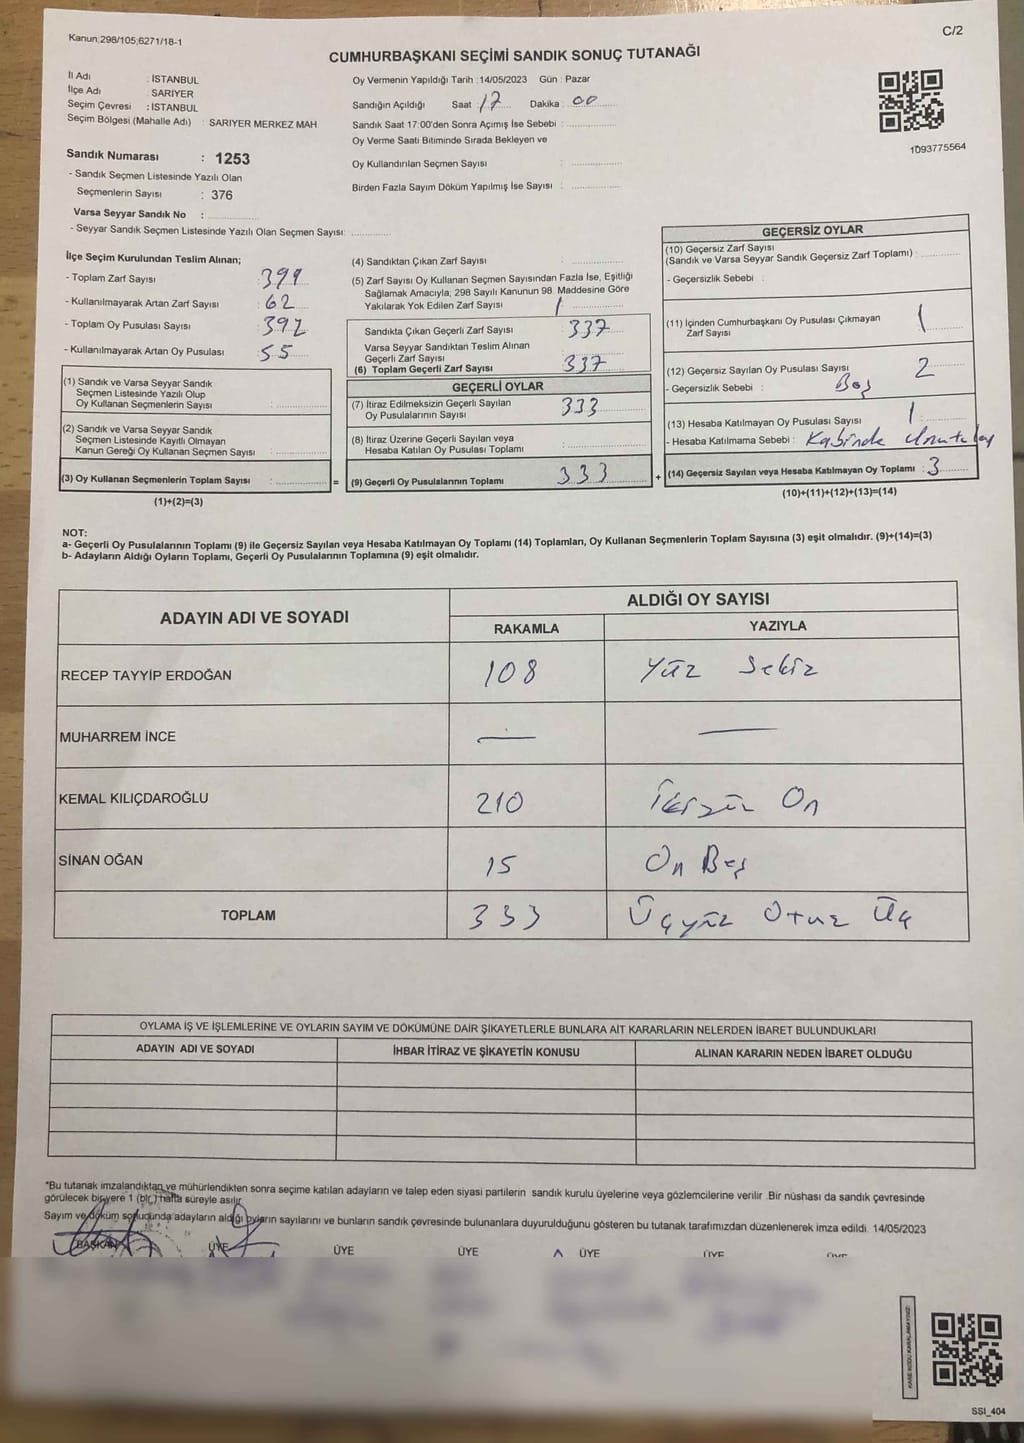 Kanun:298/105;6271/18-1
C/2
CUMHURBAŞKANI SEÇİMİ SANDIK SONUÇ TUTANAĞI
İl Adı : İSTANBUL
İlçe Adı : SARIYER
Seçim Çevresi : İSTANBUL
Seçim Bölgesi (Mahalle Adı) : SARIYER MERKEZ MAH.
Oy Vermenin Yapıldığı Tarih :14/05/2023 Gün : Pazar
Sandığın Açıldığı Saat : 17 Dakika : 00
Sandık Saat 17:00'den Sonra Açımış İse Sebebi :
Oy Verme Saati Bitiminde Sırada Bekleyen ve
Oy Kullandırılan Seçmen Sayısı :
Birden Fazla Sayım Döküm Yapılmış İse Sayısı :
1093775564
Sandık Numarası : 1253
- Sandık Seçmen Listesinde Yazılı Olan
Seçmenlerin Sayısı : 376
Varsa Seyyar Sandık No :
- Seyyar Sandık Seçmen Listesinde Yazılı Olan Seçmen Sayısı:
İlçe Seçim Kurulundan Teslim Alınan;
- Toplam Zarf Sayısı : 399
- Kullanılmayarak Artan Zarf Sayısı : 62
- Toplam Oy Pusulası Sayısı : 392
- Kullanılmayarak Artan Oy Pusulası : 55
(1) Sandık ve Varsa Seyyar Sandık
Seçmen Listesinde Yazılı Olup
Oy Kullanan Seçmenlerin Sayısı :
(2) Sandık ve Varsa Seyyar Sandık
Seçmen Listesinde Kayıtlı Olmayan
Kanun Gereği Oy Kullanan Seçmen Sayısı :
(3) Oy Kullanan Seçmenlerin Toplam Sayısı :
(1)+(2)=(3)
=
(4) Sandıktan Çıkan Zarf Sayısı :
(5) Zarf Sayısı Oy Kullanan Seçmen Sayısından Fazla İse, Eşitliği
Sağlamak Amacıyla, 298 Sayılı Kanunun 98. Maddesine Göre
Yakılarak Yok Edilen Zarf Sayısı : 1
Sandıkta Çıkan Geçerli Zarf Sayısı : 337
Varsa Seyyar Sandıktan Teslim Alınan
Geçerli Zarf Sayısı :
(6) Toplam Geçerli Zarf Sayısı : 337
GEÇERLİ OYLAR
(7) İtiraz Edilmeksizin Geçerli Sayılan
Oy Pusulalarının Sayısı : 333
(8) İtiraz Üzerine Geçerli Sayılan veya
Hesaba Katılan Oy Pusulası Toplamı :
(9) Geçerli Oy Pusulalarının Toplamı : 333
+
GEÇERSİZ OYLAR
(10) Geçersiz Zarf Sayısı
(Sandık ve Varsa Seyyar Sandık Geçersiz Zarf Toplamı) :
- Geçersizlik Sebebi :
(11) İçinden Cumhurbaşkanı Oy Pusulası Çıkmayan
Zarf Sayısı : 1
(12) Geçersiz Sayılan Oy Pusulası Sayısı : 2
- Geçersizlik Sebebi : Boş
(13) Hesaba Katılmayan Oy Pusulası Sayısı : 1
- Hesaba Katılmama Sebebi : Kabinde
(14) Geçersiz Sayılan veya Hesaba Katılmayan Oy Toplamı : 3
(10)+(11)+(12)+(13)=(14)
NOT:
a- Geçerli Oy Pusulalarının Toplamı (9) ile Geçersiz Sayılan veya Hesaba Katılmayan Oy Toplamı (14) Toplamları, Oy Kullanan Seçmenlerin Toplam Sayısına (3) eşit olmalıdır. (9)+(14)=(3)
b- Adayların Aldığı Oyların Toplamı, Geçerli Oy Pusulalarının Toplamına (9) eşit olmalıdır.
ADAYIN ADI VE SOYADI
ALDIĞI OY SAYISI
RAKAMLA YAZIYLA
RECEP TAYYİP ERDOĞAN 108 Yüz Sekiz
MUHARREM İNCE — —
KEMAL KILIÇDAROĞLU 210 İkiyüz On
SİNAN OĞAN 15 On Beş
TOPLAM 333 Üçyüz Otuz Üç
OYLAMA İŞ VE İŞLEMLERİNE VE OYLARIN SAYIM VE DÖKÜMÜNE DAİR ŞİKAYETLERLE BUNLARA AİT KARARLARIN NELERDEN İBARET BULUNDUKLARI
ADAYIN ADI VE SOYADI İHBAR İTİRAZ VE ŞİKAYETİN KONUSU ALINAN KARARIN NEDEN İBARET OLDUĞU
*Bu tutanak imzalandıktan ve mühürlendikten sonra seçime katılan adayların ve talep eden siyasi partilerin sandık kurulu üyelerine veya gözlemcilerine verilir. Bir nüshası da sandık çevresinde
görülecek bir yere 1 (bir) hafta süreyle asılır.
Sayım ve döküm sonucunda adayların aldığı oyların sayılarını ve bunların sandık çevresinde bulunanlara duyurulduğunu gösteren bu tutanak tarafımızdan düzenlenerek imza edildi. 14/05/2023
BAŞKAN ÜYE ÜYE ÜYE ÜYE ÜYE ÜYE
SSI_404